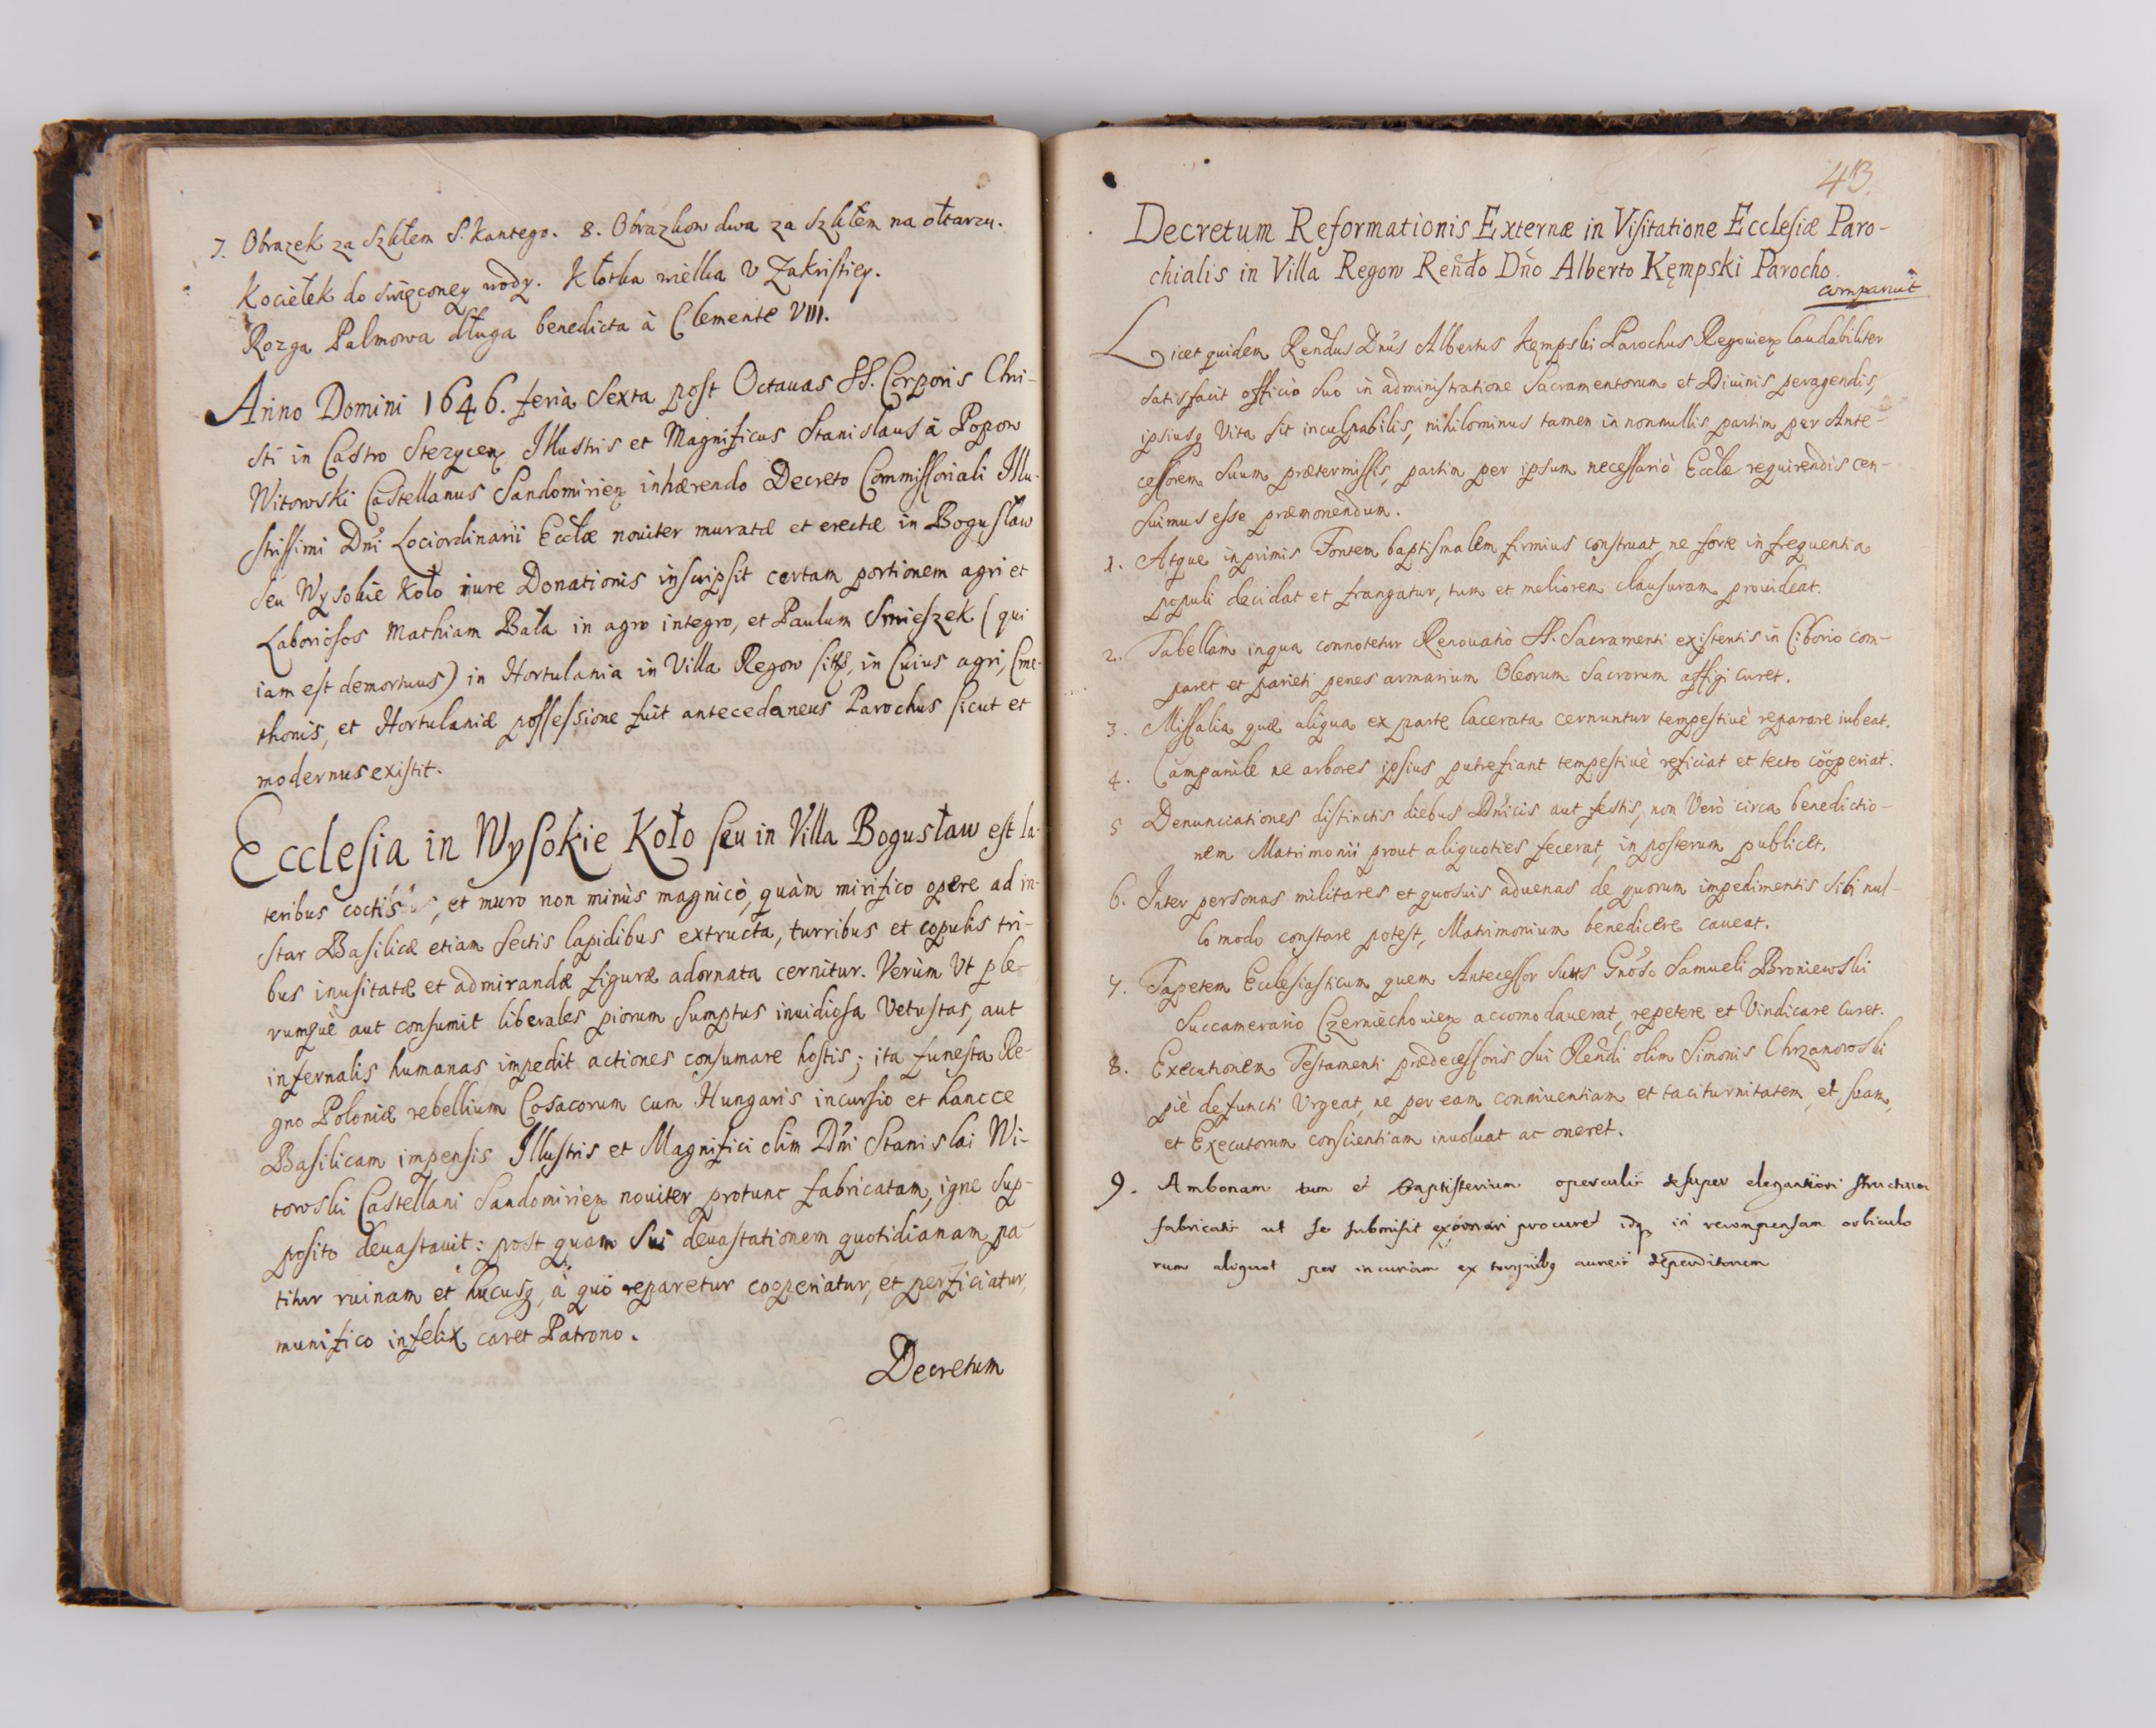 7. Obrazek za Szkłem S. Kantego. 8. Obrazkow dwa za Szkłem na ołtarzu.
Kociełek do swięconey wody. Kłotka wielka v Zakristiey.
Rozga Palmowa długa benedicta à Clemente VIII.
Anno Domini 1646. feria Sexta post Octauas SS. Corporis Chri-
sti in Castro Stezycen Illustris et Magnificus Stanislaus à Popow
Witowski Castellanus Sandomirien inhærendo Decreto Commissoriali Illu-
strissimi Dni Lociordinarii Ecclæ nouiter muratæ et erectæ in Bogusław
seu Wysokie Koło iure Donationis inscripsit certam portionem agri et
Laboriosos Mathiam Bała in agro integro, et Paulum Smieszek (qui
iam est demortuus) in Hortulania in Villa Regow sitis, in Cuius agri, Cme-
thonis, et Hortulaniæ possessione fuit antecedaneus Parochus sicut et
modernus existit.
Ecclesia in Wysokie Koło seu in Villa Bogusław est la-
teribus coctis, et muro non minùs magnicò, quàm mirifico opere ad in-
star Basilicæ etiam sectis lapidibus extructa, turribus et copulis tri-
bus inusitatæ et admirandæ figuræ adornata cernitur. Verùm Vt ple-
rumquè aut consumit liberales piorum sumptus inuidiosa Vetustas, aut
infernalis humanas impedit actiones consumare hostis; ita funesta Re-
gno Poloniæ rebellium Cosacorum cum Hungaris incursio et hancce
Basilicam impensis Illustris et Magnifici olim Dni Stanislai Wi-
towski Castellani Sandomirien nouiter protunc fabricatam, igne sup-
posito deuastauit: post quam sui deuastationem quotidianam pa-
titur ruinam et hucusq, à quo reparetur cooperiatur, et perficiatur
munifico infelix caret Patrono.
Decretum
43.
Decretum Reformationis Externæ in Visitatione Ecclesiæ Paro-
chialis in Villa Regow Rendo Dno Alberto Kęmpski Parocho.
comparuit
Licet quidem Rendus Dnus Albertus Kęmpski Parochus Regouien laudabiliter
satisfacit officio suo in administratione Sacramentorum et Diuinis peragendis,
ipsiusq Vita sit inculpabilis, nihilominus tamen in nonnullis partim per Ante-
cessorem suum prætermissis, partim per ipsum necessariò Ecclæ requirendis cen-
suimus esse præmonendum.
1. Atque inprimis Fontem baptismalem firmius construat, ne forte in frequentia
populi decidat et frangatur, tum et meliorem clausuram prouideat.
2. Tabellam in qua connotetur Renouatio SS. Sacramenti existentis in Ciborio com-
paret et parieti penes armarium Oleorum Sacrorum affigi curet.
3. Missalia quæ aliqua ex parte lacerata cernuntur tempestiuè reparare iubeat.
4. Campanile ne arbores ipsius putrefiant tempestiuè reficiat et tecto cööperiat.
5 Denunciationes distinctis diebus Dnicis aut festis, non Verò circa benedictio-
nem Matrimonii prout aliquoties fecerat, in posterum publicet.
6. Inter personas militares et quosuis aduenas de quorum impedimentis sibi nul-
lo modo constare potest, Matrimonium benedicere caueat.
7. Tapetem Ecclesiasticum quem Antecessor suus Gnoso Samueli Broniewski
Succamerario Czerniechouien accomodauerat, repetere et Vindicare curet.
8. Executionem Testamenti prædecessoris sui Rendi olim Simonis Chrzanowski
piè defuncti Vrgeat, ne per eam conniuentiam et taciturnitatem, et suam,
et Executorum conscientiam inuoluat ac oneret.
9. Ambonam tum et Baptisterium operculis desuper elegantiori structura
fabricatis ut se submisit exornari procuret idq in recompensam orbiculo
rum aliquot per incuriam ex torquibq aureis deperditorum